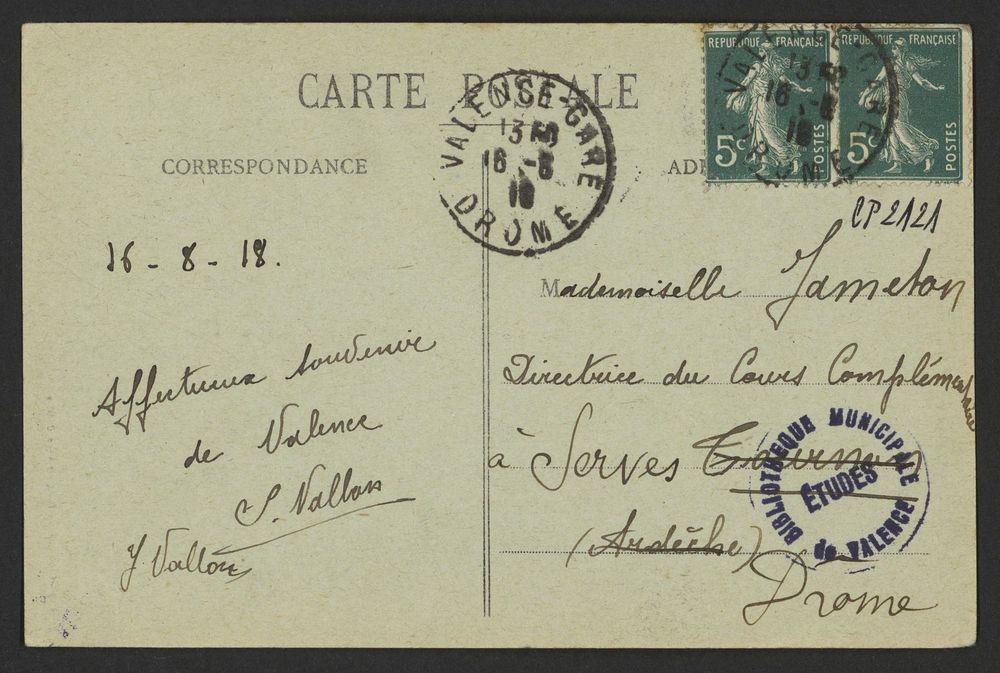 CARTE POSTALE
CORRESPONDANCE
VALENSE-GARE
13 50
16 - 8
18
DROME
REPUBLIQUE FRANÇAISE
5c
POSTES
REPUBLIQUE FRANÇAISE
5c
POSTES
CP2121
16 - 8 - 18.
Affectueux souvenir
de Valence
S. Vallon
J Vallon
Mademoiselle Jameton
Directrice du Cours Complémentaire
à Serves Tournon
(Ardèche)
Drome
BIBLIOTHEQUE MUNICIPALE
ÉTUDES
de VALENCE